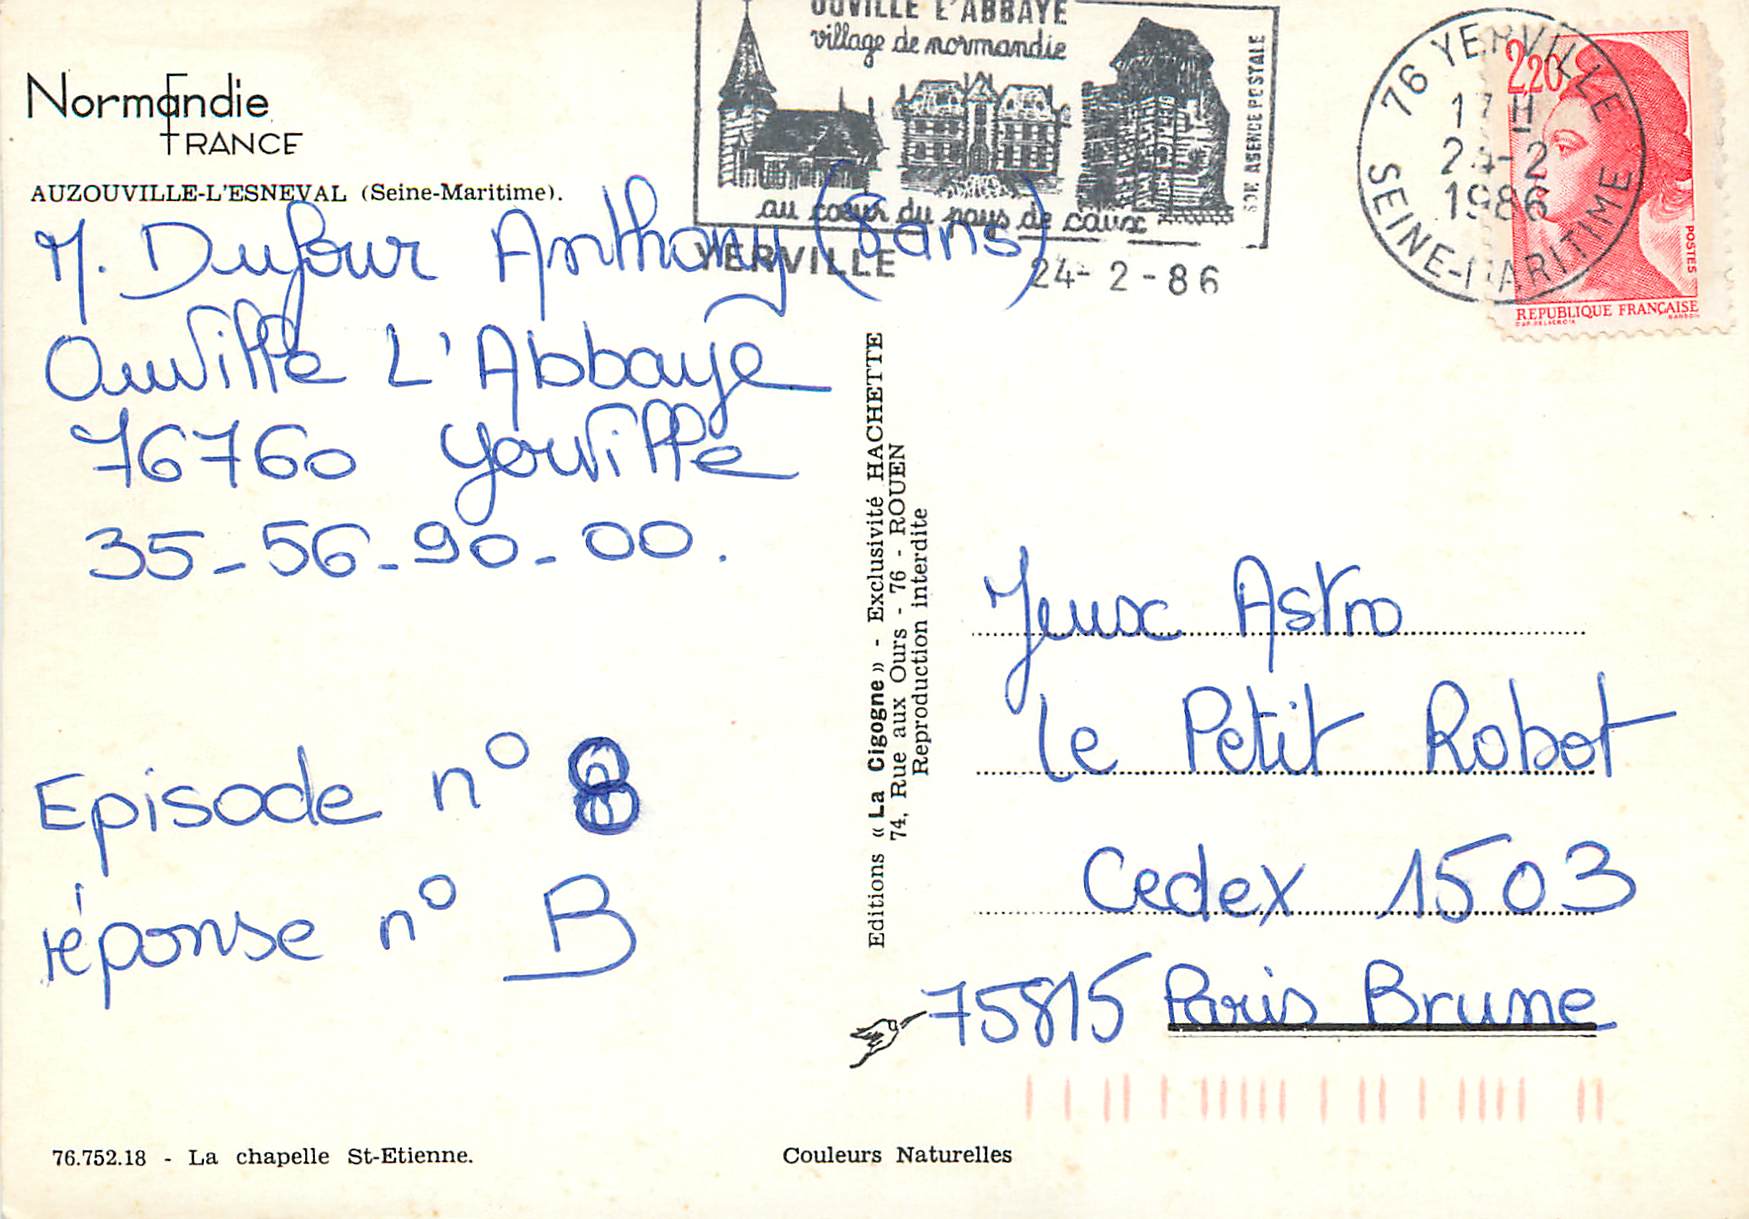 Normandie
FRANCE
AUZOUVILLE-L'ESNEVAL (Seine-Maritime).
OUVILLE L'ABBAYE
village de normandie
au coeur du pays de caux
SON AGENCE POSTALE
YERVILLE
24-2-86
76 YERVILLE
17H
24-2
1986
SEINE-MARITIME
2,20
POSTES
REPUBLIQUE FRANÇAISE
M. Dufour Anthony (8 ans)
Ouville L'Abbaye
76760 Yerville
35-56-90-00.
Episode n° 8
réponse n° B
Editions « La Cigogne » - Exclusivité HACHETTE
74, Rue aux Ours - 76 - ROUEN
Reproduction interdite
Jeux Astro
le Petit Robot
Cedex 1503
75815 Paris Brune
76.752.18 - La chapelle St-Etienne.
Couleurs Naturelles